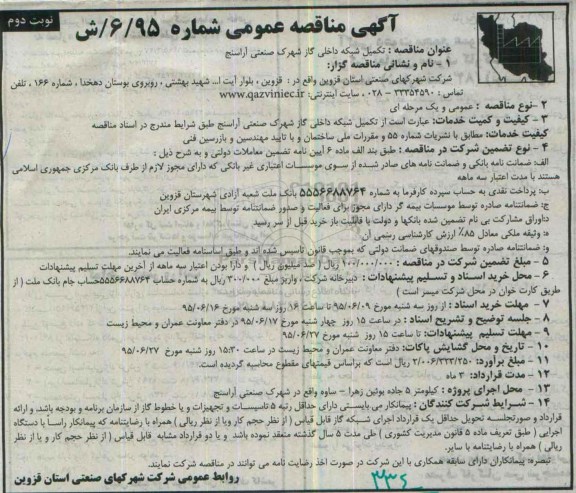 نوبت دوم
آگهی مناقصه عمومی شماره ۶/۹۵/ش
عنوان مناقصه : تکمیل شبکه داخلی گاز شهرک صنعتی آراسنج
۱ - نام و نشانی مناقصه گزار:
شرکت شهرکهای صنعتی استان قزوین واقع در : قزوین ، بلوار آیت ا... شهید بهشتی ، روبروی بوستان دهخدا ، شماره ۱۶۶ ، تلفن
تماس : ۳۳۳۵۴۵۹۰ - ۰۲۸ ، سایت اینترنتی: www.qazviniec.ir
۲ -نوع مناقصه : عمومی و یک مرحله ای
۳ - کیفیت و کمیت خدمات: عبارت است از تکمیل شبکه داخلی گاز شهرک صنعتی آراسنج طبق شرایط مندرج در اسناد مناقصه
کیفیت خدمات: مطابق با نشریات شماره ۵۵ و مقررات ملی ساختمان و با تایید مهندسین و بازرسین فنی
۴ - نوع تضمین شرکت در مناقصه : طبق بند الف ماده ۶ آیین نامه تضمین معاملات دولتی و به شرح ذیل :
الف: ضمانت نامه بانکی و ضمانت نامه های صادر شده از سوی موسسات اعتباری غیر بانکی که دارای مجوز لازم از طرف بانک مرکزی جمهوری اسلامی
هستند با مدت اعتبار سه ماهه
ب: پرداخت نقدی به حساب سپرده کارفرما به شماره ۵۵۵۶۶۸۸۷۶۴ بانک ملت شعبه آزادی شهرستان قزوین
ج: ضمانتنامه صادره توسط موسسات بیمه گر دارای مجوز برای فعالیت و صدور ضمانتنامه توسط بیمه مرکزی ایران
د:اوراق مشارکت بی نام تضمین شده بانکها و دولت با قابلیت باز خرید قبل از سر رسید
ه: وثیقه ملکی معادل ۸۵٪ ارزش کارشناسی رسمی آن
و: ضمانتنامه صادره توسط صندوقهای ضمانت دولتی که بموجب قانون تاسیس شده اند و طبق اساسنامه فعالیت می نمایند.
۵ - مبلغ تضمین شرکت در مناقصه : ۱۰۰/۰۰۰/۰۰۰ ریال ( صد میلیون ریال ) و دارا بودن اعتبار سه ماهه از آخرین مهلت تسلیم پیشنهادات
۶ - محل خرید اسناد و تسلیم پیشنهادات : دبیرخانه شرکت ، واریز مبلغ ۳۰۰/۰۰۰ ریال به شماره حساب ۵۵۵۶۶۸۸۷۶۴حساب جام بانک ملت ( از
طریق کارت خوان در محل شرکت میسر است )
۷ - مهلت خرید اسناد : از روز سه شنبه مورخ ۹۵/۰۶/۰۹ تا ساعت ۱۶ روز سه شنبه مورخ ۹۵/۰۶/۱۶
۸ - جلسه توضیح و تشریح اسناد : در ساعت ۱۵ روز چهار شنبه مورخ ۹۵/۰۶/۱۷ در دفتر معاونت عمران و محیط زیست
۹ - مهلت تسلیم پیشنهادات: تا ساعت ۱۵ روز شنبه مورخ ۹۵/۰۶/۲۷
۱۰ - تاریخ و محل گشایش پاکات: دفتر معاونت عمران و محیط زیست در ساعت ۱۵:۳۰ روز شنبه مورخ ۹۵/۰۶/۲۷
۱۱ - مبلغ برآورد: ۲/۰۰۶/۳۳۳/۲۵۰ ریال است که براساس قیمتهای مقطوع محاسبه گردیده است.
۱۲ - مدت قرارداد: ۳ ماه
۱۳ - محل اجرای پروژه : کیلومتر ۵ جاده بوئین زهرا - ساوه واقع در شهرک صنعتی آراسنج
۱۴ - شرایط شرکت کنندگان : پیمانکار می بایستی دارای حداقل رتبه ۵ تاسیسات و تجهیزات و یا خطوط گاز از سازمان برنامه و بودجه باشد، و ارائه
قرارداد و صورتجلسه تحویل حداقل یک قرارداد اجرای شبکه گاز قابل قیاس ( از نظر حجم کار ویا از نظر ریالی ) همراه با رضایتنامه که پیمانکار راسا با دستگاه
اجرایی ( طبق تعریف ماده ۵ قانون مدیریت کشوری ) طی مدت ۵ سال گذشته منعقد نموده باشد و یا دو قرارداد مشابه قابل قیاس ( از نظر حجم کار و یا از نظر
ریالی ) همراه با رضایتنامه با سایر.
تبصره: پیمانکاران دارای سابقه همکاری با این شرکت در صورت اخذ رضایت نامه می توانند در مناقصه شرکت نمایند.
روابط عمومی شرکت شهرکهای صنعتی استان قزوین